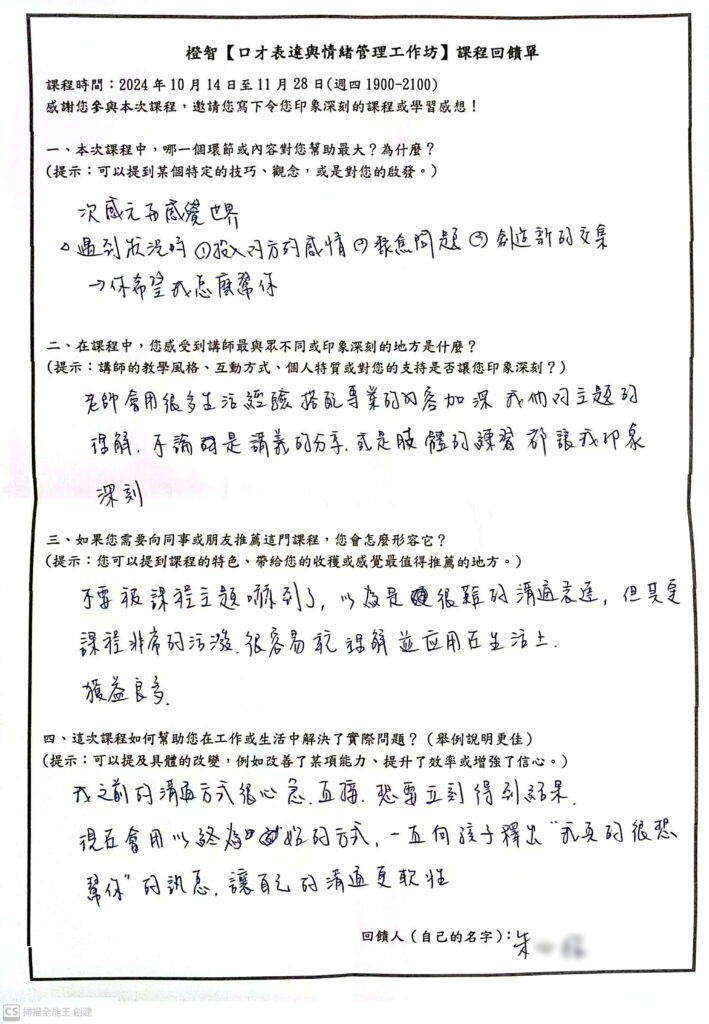 橙智【口才表達與情緒管理工作坊】課程回饋單
課程時間：2024 年 10 月 14 日至 11 月 28 日(週四 1900-2100)
感謝您參與本次課程，邀請您寫下令您印象深刻的課程或學習感想！
一、本次課程中，哪一個環節或內容對您幫助最大？為什麼？
(提示：可以提到某個特定的技巧、觀念，或是對您的啟發。)
次感元再感覺世界
遇到狀況時 ①投入對方的感情 ② 聚焦問題 ③ 創造新的交集
→你希望我怎麼幫你
二、在課程中，您感受到講師最與眾不同或印象深刻的地方是什麼？
(提示：講師的教學風格、互動方式、個人特質或對您的支持是否讓您印象深刻？)
老師會用很多生活經驗搭配專業的內容加深我們對主題的
理解. 不論是講義的分享. 或是肢體的練習都讓我印象
深刻
三、如果您需要向同事或朋友推薦這門課程，您會怎麼形容它？
(提示：您可以提到課程的特色、帶給您的收穫或感覺最值得推薦的地方。)
不要被課程主題嚇到了, 以為是很難的溝通表達, 但其實
課程非常的活潑. 很容易就理解並应用在生活上.
獲益良多.
四、這次課程如何幫助您在工作或生活中解決了實際問題？（舉例說明更佳）
(提示：可以提及具體的改變，例如改善了某項能力、提升了效率或增強了信心。)
我之前的溝通方式很心急. 直接. 想要立刻得到結果.
現在會用以終為始的方式, 一直向孩子釋出 "我真的很想
幫你" 的訊息. 讓自己的溝通更軟性
回饋人（自己的名字）：朱
CS 掃描全能王 創建